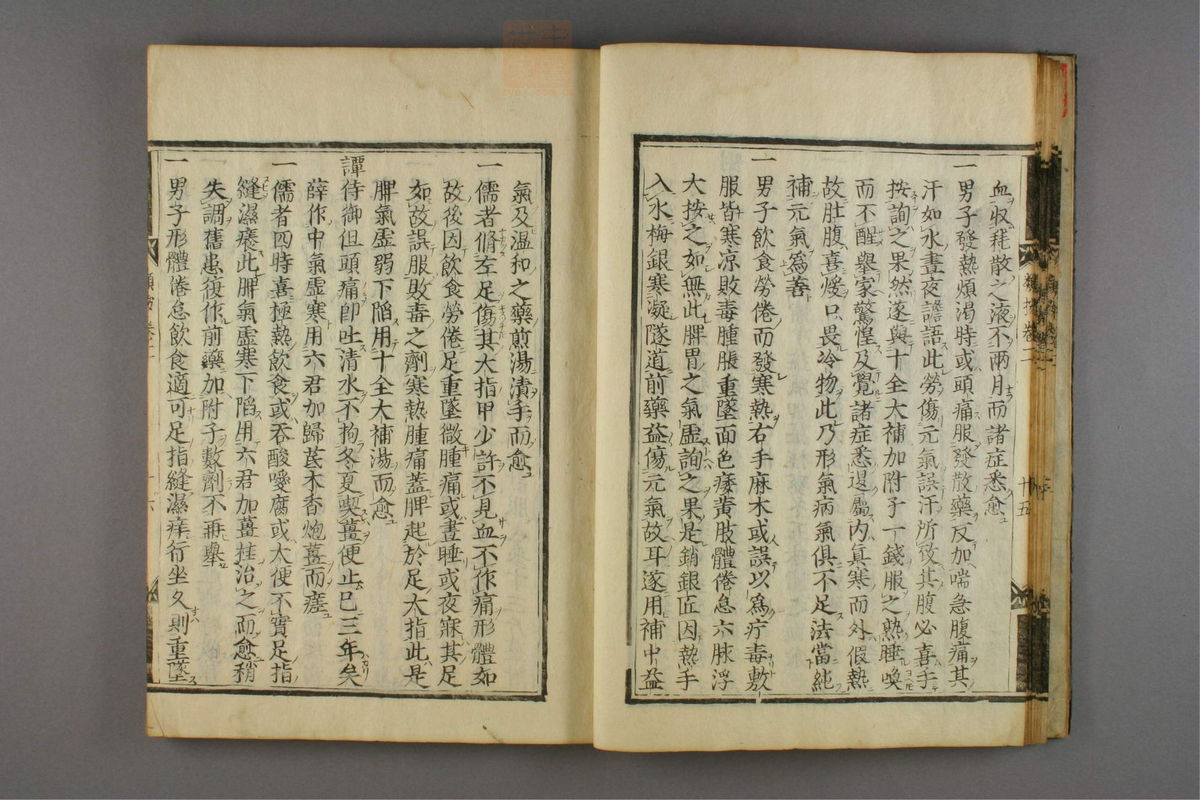 血收耗散之液不兩月而諸症悉愈
一男子發熱煩渴時或頭痛服發散藥反加喘急腹痛其
汗如水晝夜譫語此勞傷元氣誤汗所致其腹必喜手
按詢之果然遂與十全大補加附子一錢服之熱睡喚
而不醒舉家驚惶及覺諸症悉退屬內眞寒而外假熱
故肚腹喜煖口畏冷物此乃形氣病氣俱不足法當純
補元氣爲善
一男子飲食勞倦而發寒熱右手麻木或誤以爲疔毒敷
服皆寒凉敗毒腫脹重墜面色痿黃肢體倦怠六脉浮
大按之如無此脾胃之氣虛詢之果是銷銀匠因熱手
入水梅銀寒凝隧道前藥益傷元氣故耳遂用補中益
十五
氣及溫和之藥煎湯漬手而愈
一儒者脩左足傷其大指甲少許不見血不作痛形體如
故後因飲食勞倦足重墜微腫痛或晝睡或夜寐其足
如故誤服敗毒之劑寒熱腫痛蓋脾起於足大指此是
脾氣虛弱下陷用十全大補湯而愈
譚侍御但頭痛卽吐清水不拘冬夏喫薑便止已三年矣
薛作中氣虛寒用六君加歸芪木香炮薑而瘥
一儒者四時喜極熱飲食或吞酸噯腐或大便不實足指
縫濕痒此脾氣虛寒下陷用六君加薑桂治之而愈稍
失調舊患復作前藥加附子數劑不再舉
一男子形體倦怠飲食適可足指縫濕痒行坐久則重墜